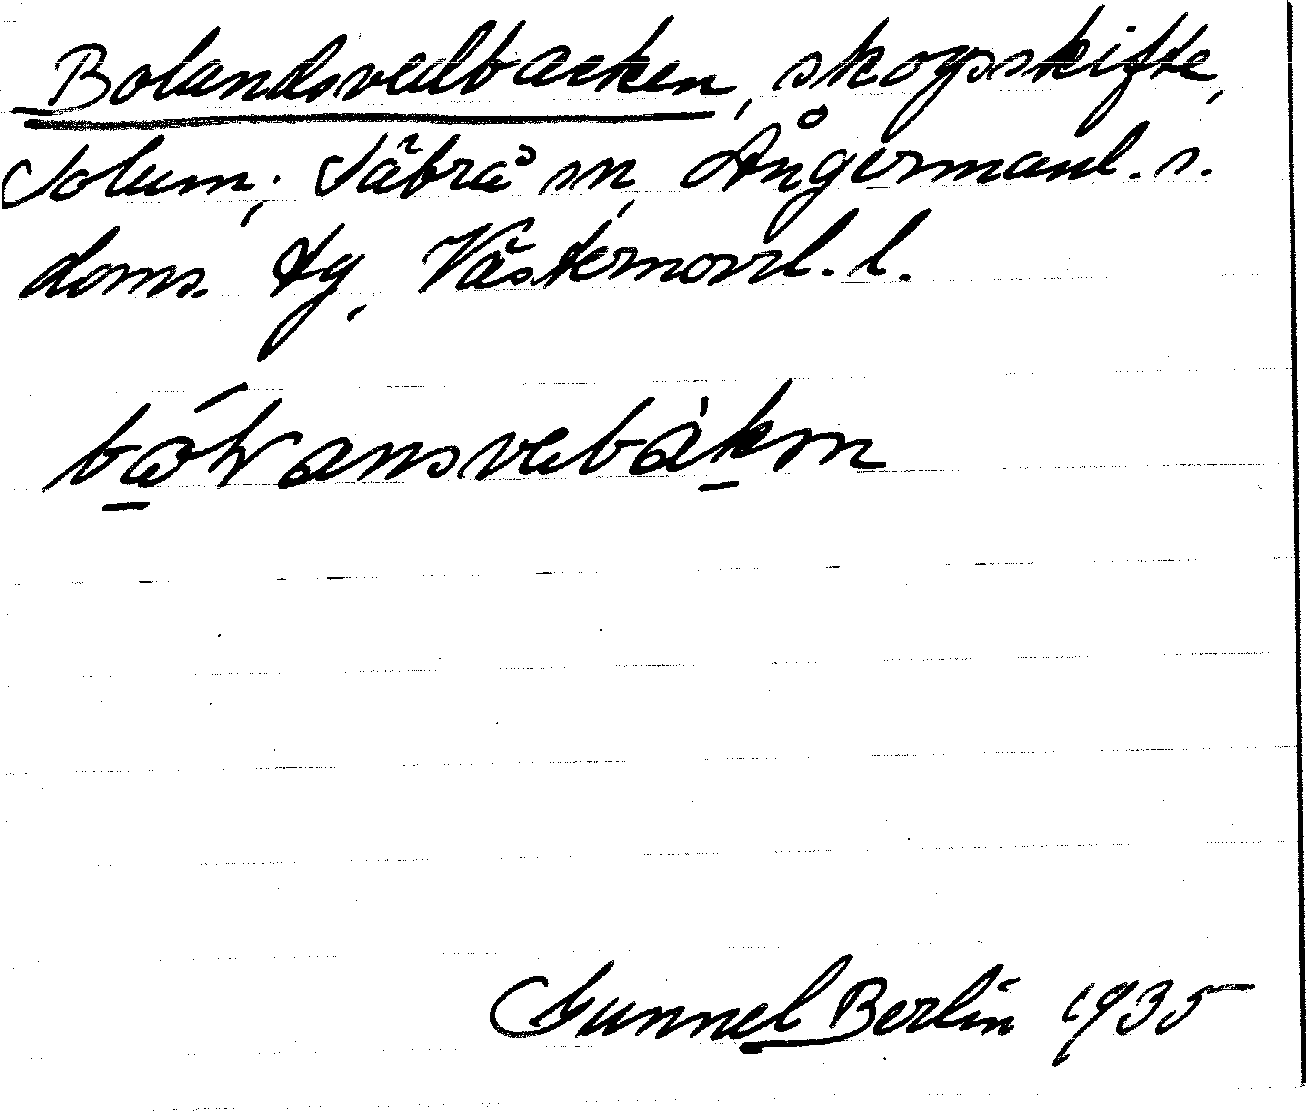 Bolandsvedbacken, skogsskifte,
Solum, Säbrå sn, Ångermanl. s.
doms. tg, Västernorrl. l.
Gunnel Berlin 1935